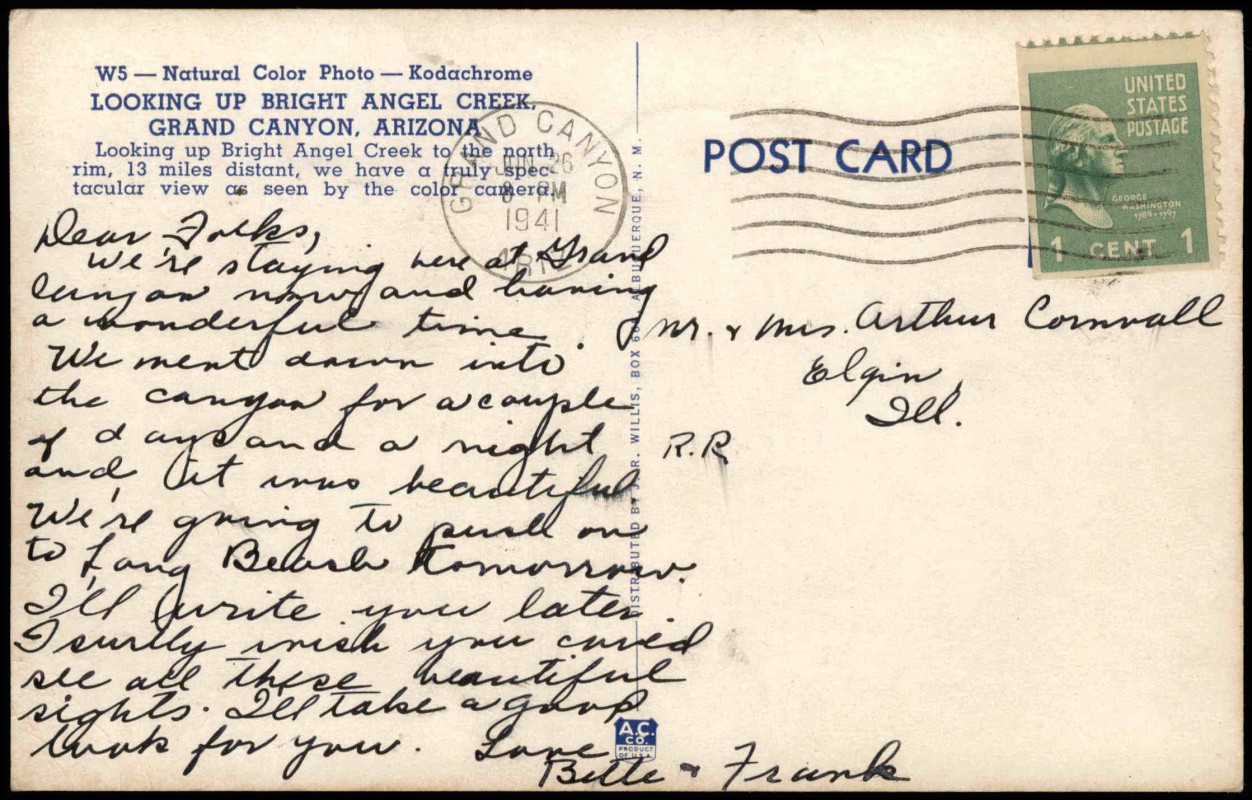 W5 — Natural Color Photo — Kodachrome
LOOKING UP BRIGHT ANGEL CREEK,
GRAND CANYON, ARIZONA
Looking up Bright Angel Creek to the north
rim, 13 miles distant, we have a truly spec-
tacular view as seen by the color camera.
Dear Folks,
We're staying here at Grand
Canyon now and having
a wonderful time.
We went down into
the canyon for a couple
of days and a night
and it was beautiful
We're going to push on
to Long Beach tomorrow.
I'll write you later
I surely wish you could
see all these beautiful
sights. I'll take a good
look for you. Love
Bette & Frank
GRAND CANYON
JUN 26
8 PM
1941
ARIZ
DISTRIBUTED BY J. R. WILLIS, BOX 66, ALBUQUERQUE, N. M.
A.C.
CO.
PRODUCT
OF U.S.A.
POST CARD
UNITED
STATES
POSTAGE
GEORGE
WASHINGTON
1789-1797
1 CENT 1
Mr. & Mrs. Arthur Cornwall
Elgin,
Ill.
R.R.